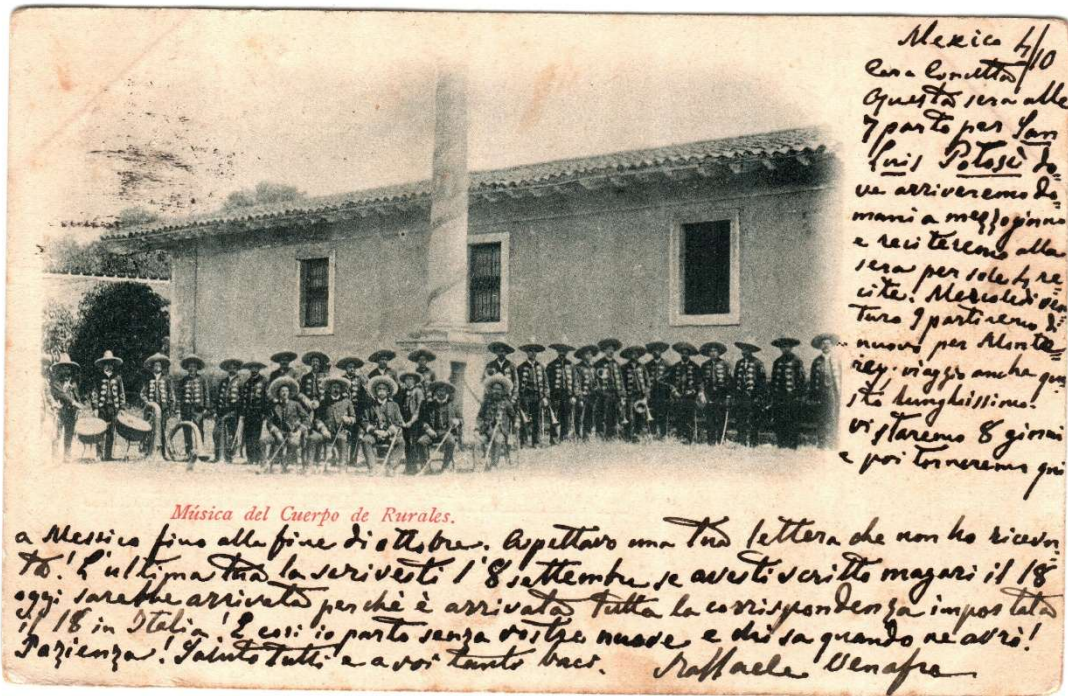 Mexico 4/10
Cara Concetta
Questa sera alle
7 parto per San
Luis Potosì do=
ve arriveremo do=
mani a mezzogiorno
e reciteremo alla
sera per sole 4 re=
cite. Mercoledì ven
turo 9 partiremo di
nuovo per Monte=
rey. viaggio anche que
sto lunghissimo.
vi staremo 8 giorni
e poi torneremo qui
Música del Cuerpo de Rurales.
a Messico fino alla fine di ottobre. Aspettavo una tua lettera che non ho ricevu=
ta! L'ultima tua la scrivesti l'8 settembre se avesti scritto magari il 18
oggi sarebbe arrivata perchè è arrivata tutta la corrispondenza impostata
il 18 in Italia! E così io parto senza vostre nuove e chi sa quando ne avrò!
Pazienza! Saluto tutti e a voi tanti baci. Raffaele Venafra